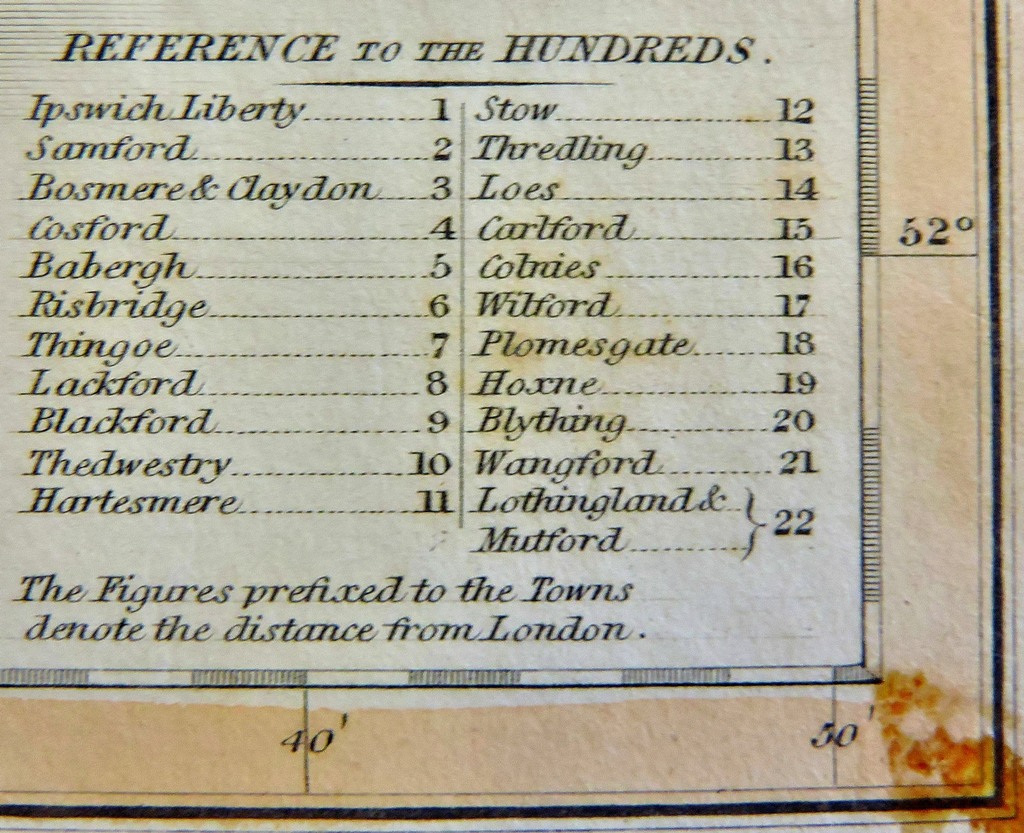 REFERENCE TO THE HUNDREDS.
Ipswich Liberty 1
Samford 2
Bosmere & Claydon 3
Cosford 4
Babergh 5
Risbridge 6
Thingoe 7
Lackford 8
Blackford 9
Thedwestry 10
Hartesmere 11
Stow 12
Thredling 13
Loes 14
Carlford 15
Colnies 16
Wilford 17
Plomesgate 18
Hoxne 19
Blything 20
Wangford 21
Lothingland &
Mutford } 22
The Figures prefixed to the Towns
denote the distance from London.
52°
40'
50'